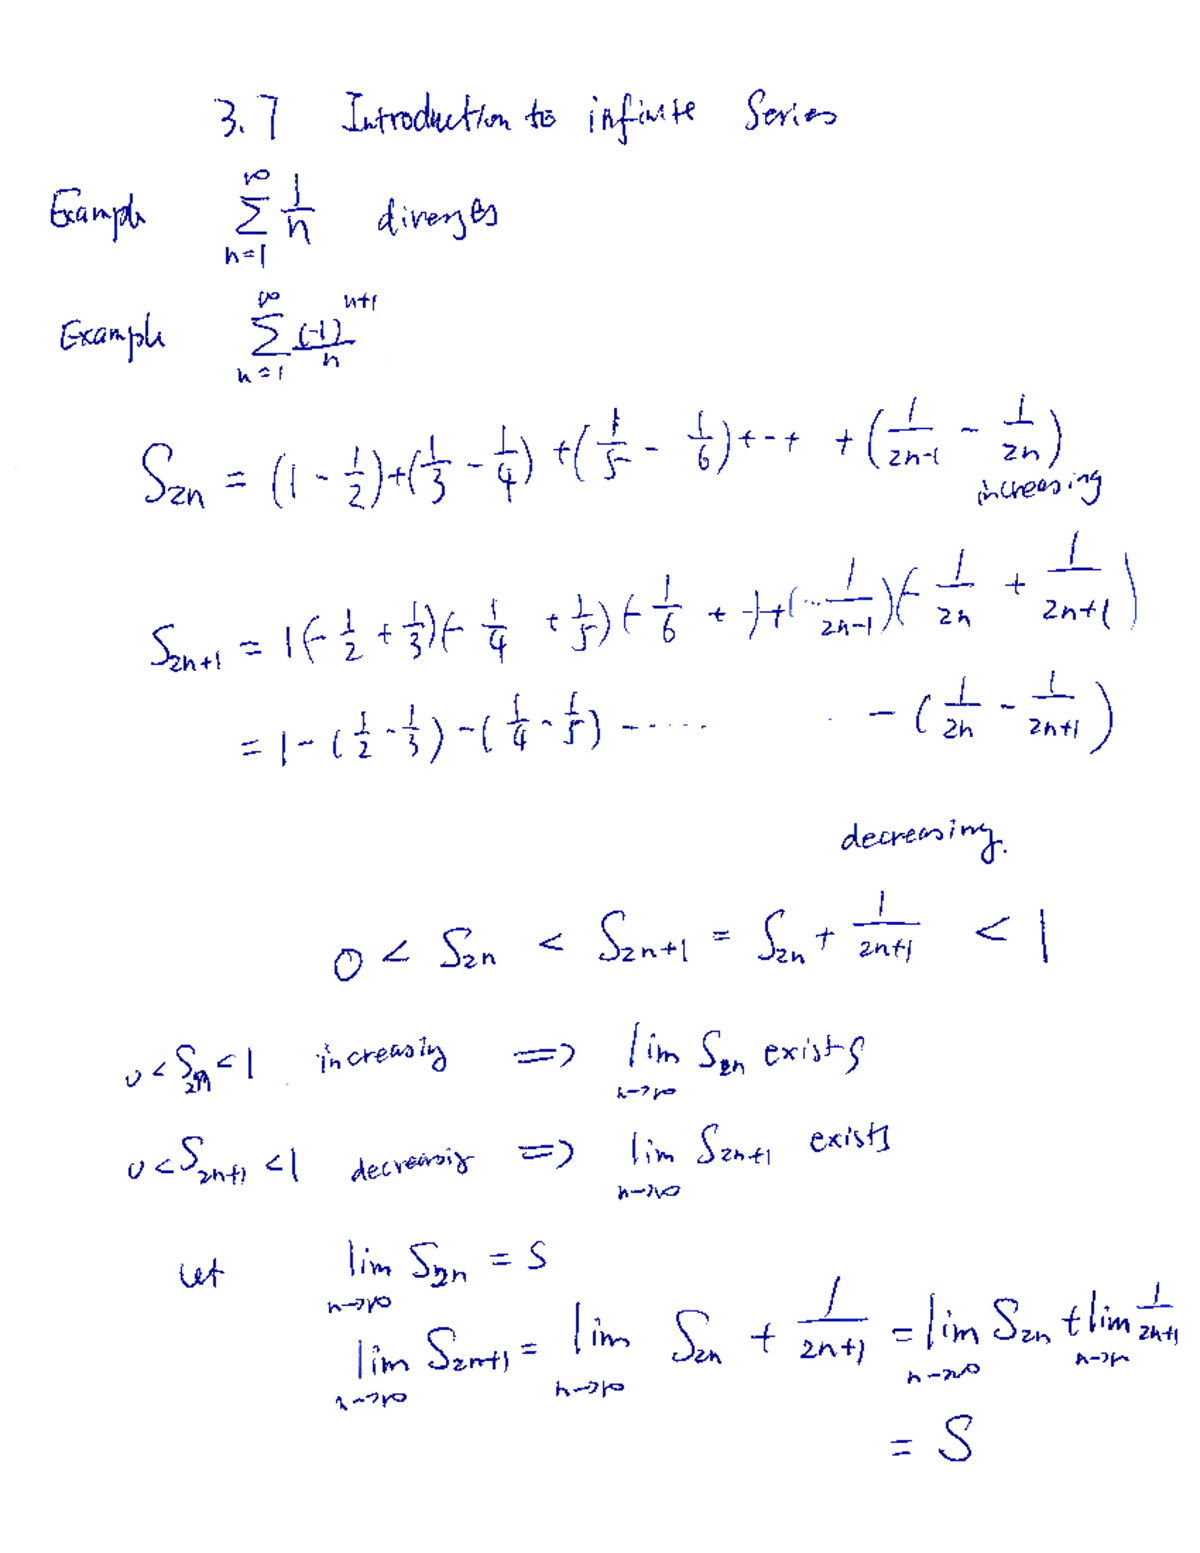 3.7 Introduction to infinite Series
Example ∑_{n=1}^{∞} 1/n diverges
Example ∑_{n=1}^{∞} (-1)^{n+1}/n
S_{2n} = (1 - 1/2) + (1/3 - 1/4) + (1/5 - 1/6) + -- + + (1/(2n-1) - 1/(2n))
increasing
S_{2n+1} = 1 (- 1/2 + 1/3) (- 1/4 + 1/5) (- 1/6 + -) + (... 1/(2n-1)) (- 1/(2n) + 1/(2n+1))
= 1 - (1/2 - 1/3) - (1/4 - 1/5) - ..... - (1/(2n) - 1/(2n+1))
decreasing.
0 < S_{2n} < S_{2n+1} = S_{2n} + 1/(2n+1) < 1
0 < S_{2n} < 1 increasing => lim_{n→∞} S_{2n} exists
0 < S_{2n+1} < 1 decreasing => lim_{n→∞} S_{2n+1} exists
Let lim_{n→∞} S_{2n} = S
lim_{n→∞} S_{2n+1} = lim_{n→∞} S_{2n} + 1/(2n+1) = lim_{n→∞} S_{2n} + lim_{n→∞} 1/(2n+1)
= S